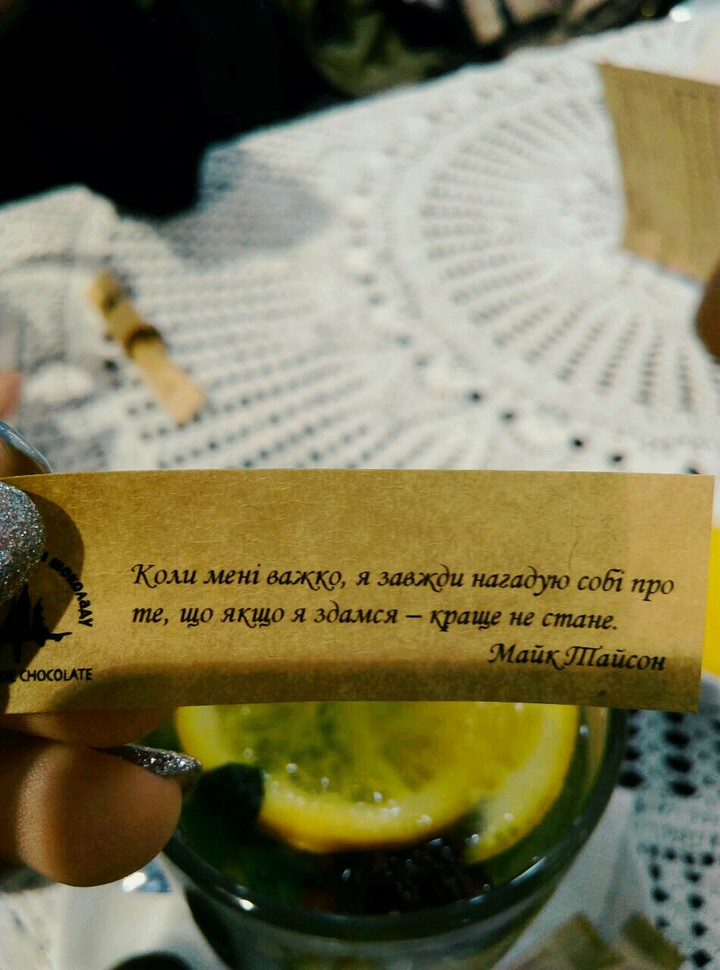 Коли мені важко, я завжди нагадую собі про
те, що якщо я здамся – краще не стане.
Майк Тайсон
ШОКОЛАДУ
DE CHOCOLATE